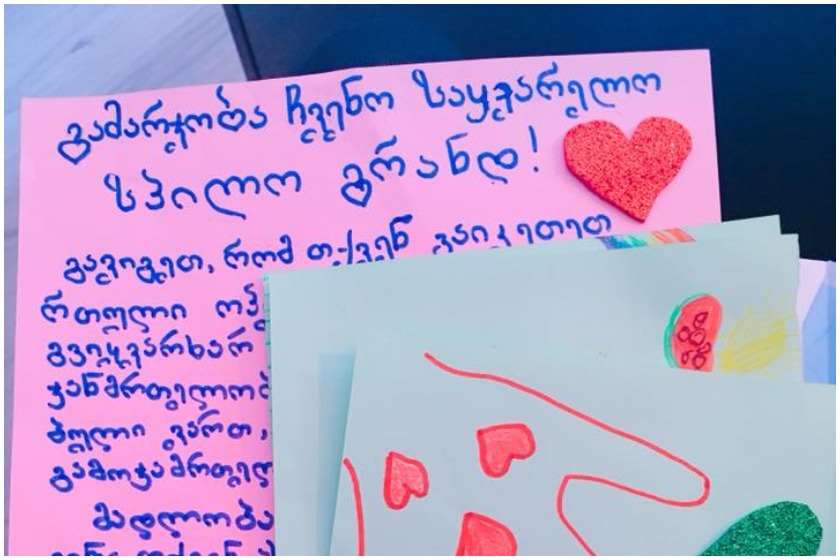 გამარჯობა ჩვენო საყვარელო
სპილო გრანდ!
გავიგეთ, რომ თქვენ გაიკეთეთ
რთული
გვიყვარხარ
ჯანმრთელობ
ვართ,
გამოჯამრთელ
მადლობა